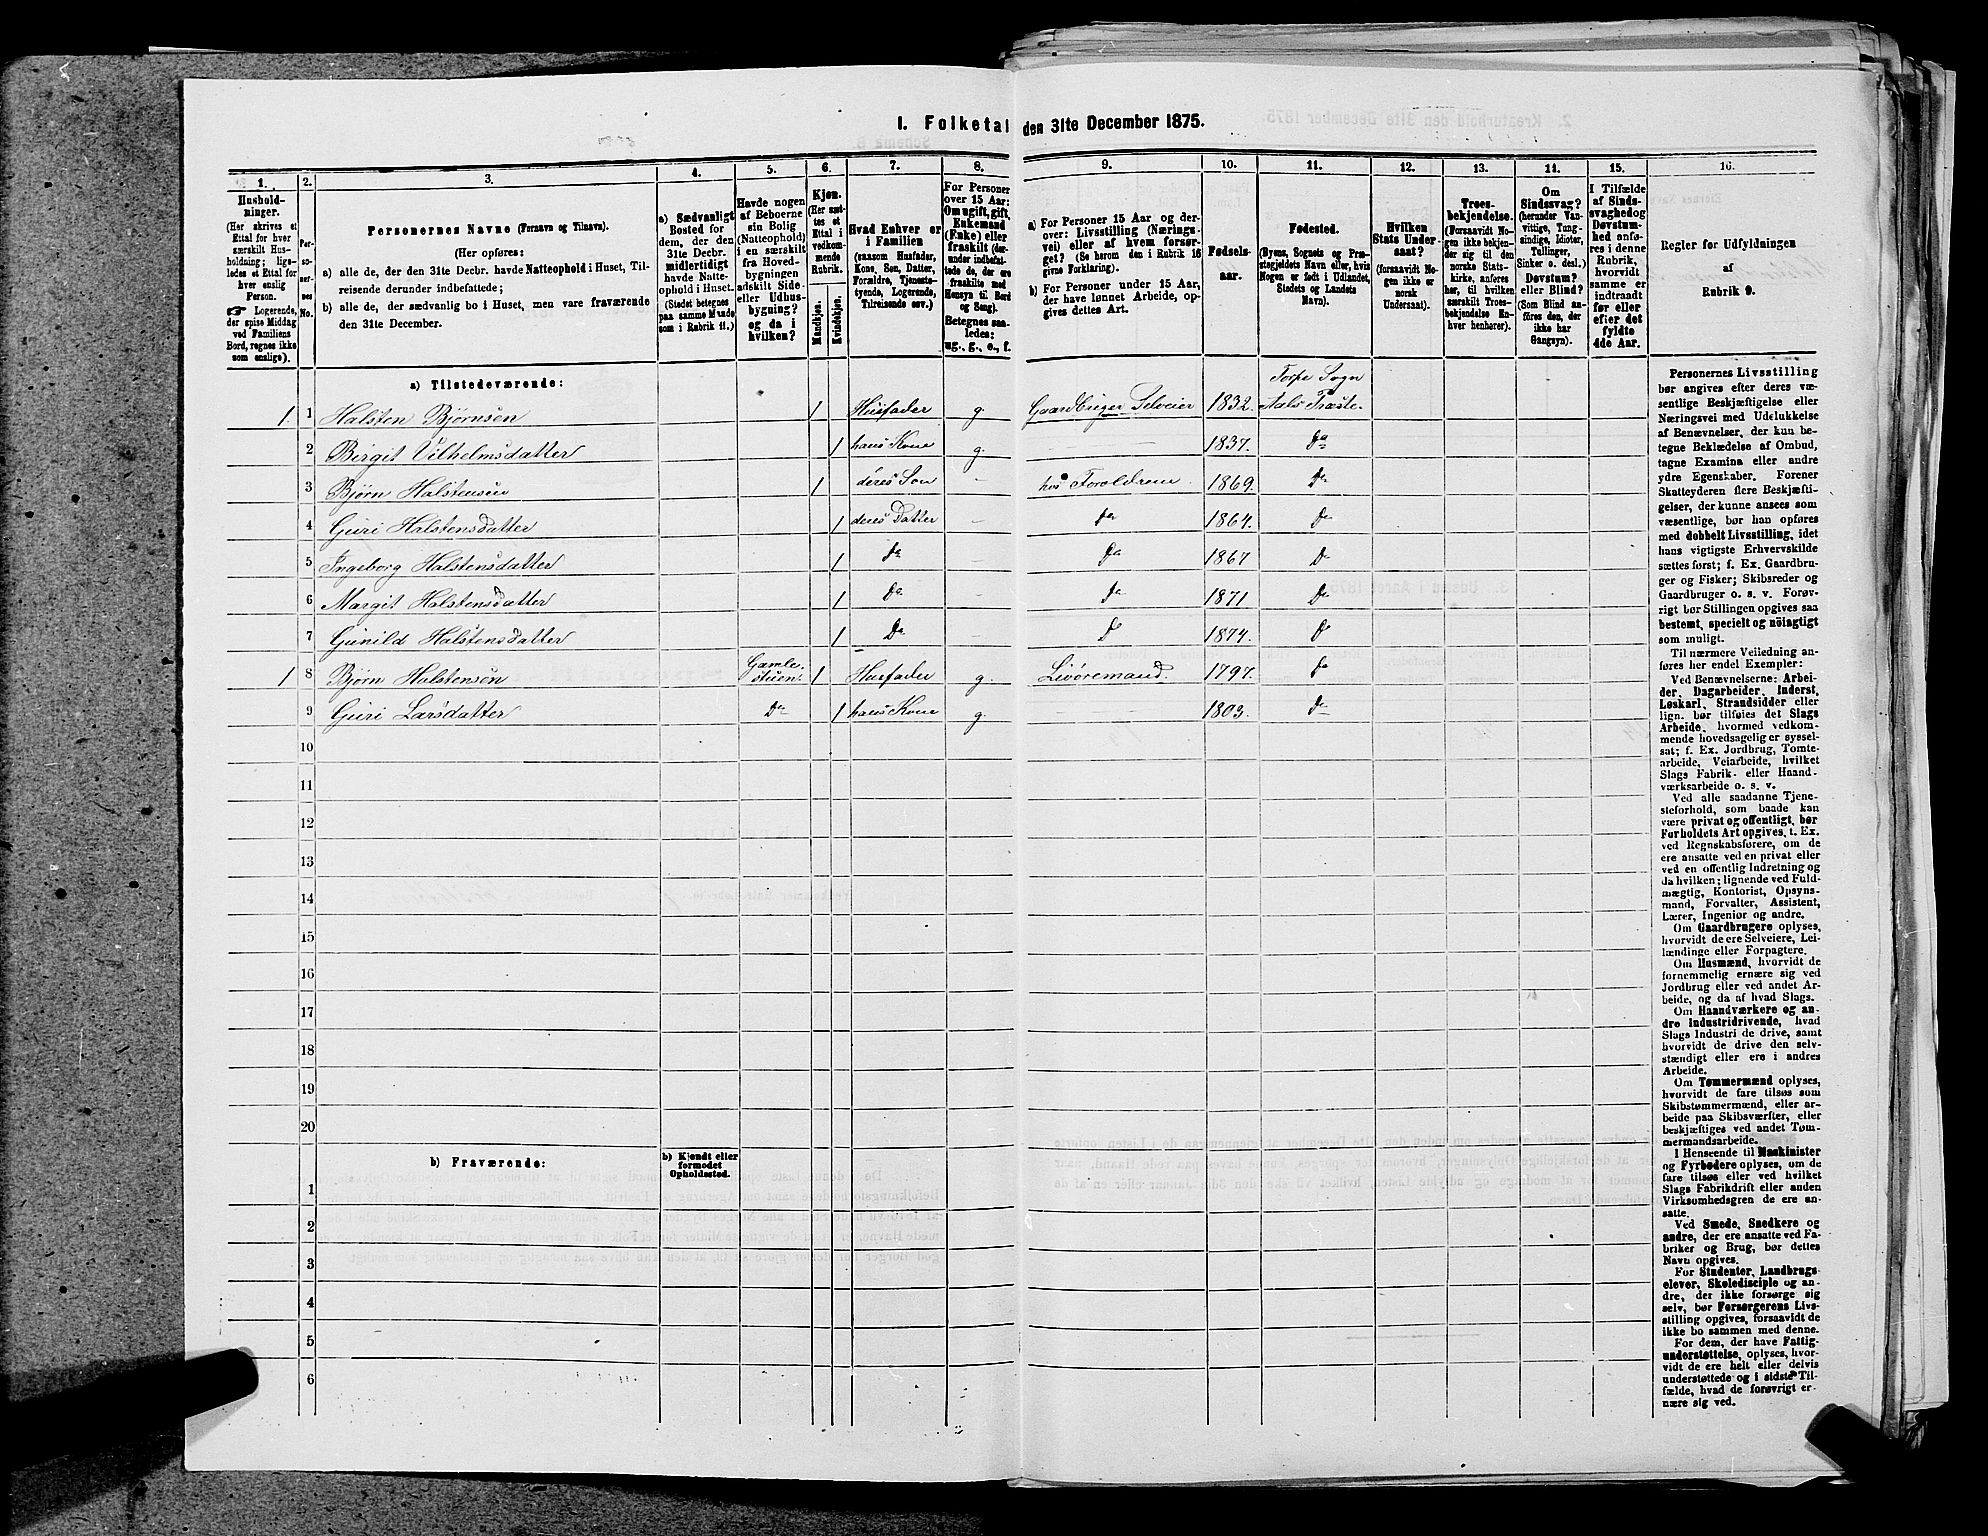 I. Folketal den 31te December 1875.
1.
Hushold-
ninger.
(Her skrives et
Ettal for hver
særskilt Hus-
holdning; lige-
ledes et Ettal for
hver enslig
Person.
☞ Logerende,
der spise Middag
ved Familiens
Bord, regnes ikke
som enslige).
2.
Per-
soner-
nes
No.
3.
Personernes Navne (Fornavn og Tilnavn).
(Her opføres:
a) alle de, der den 31te Decbr. havde Natteophold i Huset, Til-
reisende derunder indbefattede;
b) alle de, der sædvanlig bo i Huset, men vare fraværende
den 31te December.
4.
a) Sædvanligt
Bosted for
dem, der den
31te Decbr.
midlertidigt
havde Natte-
ophold i Huset.
(Stedet betegnes
paa samme Maade
som i Rubrik 11.)
5.
Havde nogen
af Beboerne
sin Bolig
(Natteophold)
i en særskilt
fra Hoved-
bygningen
adskilt Side-
eller Udhus-
bygning?
og da i
hvilken?
6.
Kjøn.
(Her sæt-
tes et
Ettal i
vedkom-
mende
Rubrik.
Mandkjøn.
Kvindekjøn.
7.
Hvad Enhver er
i Familien
(saasom Husfader,
Kone, Søn, Datter,
Forældre, Tjeneste-
tyende, Logerende,
Tilreisende osv.)
8.
For Personer
over 15 Aar:
Om ugift, gift,
Enkemand
(Enke) eller
fraskilt (der-
under indbefat-
tede de, der ere
fraskilte med
Hensyn til Bord
og Seng).
Betegnes saa-
ledes:
ug., g., e., f.
9.
a) For Personer 15 Aar og der-
over: Livsstilling (Nærings-
vei) eller af hvem forsør-
get? (Se herom den i Rubrik 16
givne Forklaring).
b) For Personer under 15 Aar,
der have lønnet Arbeide, op-
gives dettes Art.
10.
Fødsels-
aar.
11.
Fødested.
(Byens, Sognets og Præ-
stegjeldets Navn eller, hvis
Nogen er født i Udlandet,
Stedets og Landets
Navn).
12.
Hvilken
Stats Under-
saat?
(forsaavidt No-
gen ikke er
norsk
Undersaat).
13.
Troes-
bekjendelse.
(Forsaavidt No-
gen ikke bekjen-
der sig til den
norske Stats-
kirke, anføres
her, til hvilken
særskilt Troes-
bekjendelse En-
hver henhører).
14.
Om
Sindssvag?
(herunder Van-
vittige, Tung-
sindige, Idioter,
Tullinger,
Sinker o. desl.)
Døvstum?
eller Blind?
(Som Blind an-
føres den, der
ikke har
Gangsyn).
15.
I Tilfælde
af Sinds-
svaghed og
Døvstum-
hed anfø-
res i denne
Rubrik,
hvorvidt
samme er
indtraadt
før eller
efter det
fyldte
4de Aar.
16.
Regler for Udfyldningen
af
Rubrik 9.
a) Tilstedeværende:
1. 1 Halsten Bjørnsen 1 Husfader g. Gaardbruger Selveier 1832. Torpe Sogn Aals Præste.
2 Birgit Vilhelmsdatter 1 hans Kone g. — 1837. Do
3 Bjørn Halstensen 1 deres Søn — hos Forældrene. 1869. Do
4 Guri Halstensdatter 1 deres Datter — Do 1864. Do
5 Ingeborg Halstensdatter 1 Do — Do 1867 Do
6 Margit Halstensdatter 1 Do — Do 1871 Do
7 Gunild Halstensdatter 1 Do — Do 1874. Do
1 8 Bjørn Halstensen Gamle-stuen. 1 Husfader g. 1797. Do
9 Guri Larsdatter Do 1 hans Kone g. — 1803. Do
10
11
12
13
14
15
16
17
18
19
20
b) Fraværende:
b) Kjendt eller
formodet
Opholdssted.
1
2
3
4
5
6
Personernes Livsstilling
bør angives efter deres væ-
sentlige Beskjæftigelse eller
Næringsvei med Udelukkelse
af Benævnelser, der kun be-
tegne Beklædelse af Ombud,
tagne Examina eller andre
ydre Egenskaber. Forener
Skatteyderen flere Beskjæfti-
gelser, der kunne ansees som
væsentlige, bør han opføres
med dobbelt Livsstilling, idet
hans vigtigste Erhvervskilde
sættes først; f. Ex. Gaardbru-
ger og Fisker; Skibsreder og
Gaardbruger o. s. v. Forøv-
rigt bør Stillingen opgives saa
bestemt, specielt og nöiagtigt
som muligt.
Til nærmere Veiledning an-
føres her endel Exempler:
Ved Benævnelserne: Arbei-
der, Dagarbeider, Inderst,
Løskarl, Strandsidder eller
lign. bør tilføies det Slags
Arbeide, hvormed vedkom-
mende hovedsagelig er syssel-
sat; f. Ex. Jordbrug, Tomte-
arbeide, Veiarbeide, hvilket
Slags Fabrik- eller Haand-
værksarbeide o. s. v.
Ved alle saadanne Tjene-
steforhold, som baade kan
være privat og offentligt, bør
Forholdets Art opgives, t. Ex.
ved Regnskabsførere, om de
ere ansatte ved en privat eller
ved en offentlig Indretning og
da hvilken; lignende ved Fuld-
mægtig, Kontorist, Opsyns-
mand, Forvalter, Assistent,
Lærer, Ingeniør og andre.
Om Gaardbrugere oplyses,
hvorvidt de ere Selveiere, Lei-
lændinge eller Forpagtere.
Om Husmænd, hvorvidt de
fornemmelig ernære sig ved
Jordbrug eller ved andet Ar-
beide, og da af hvad Slags.
Om Haandværkere og an-
dre Industridrivende, hvad
Slags Industri de drive, samt
hvorvidt de drive den selv-
stændigt eller ere i andres
Arbeide.
Om Tømmermænd oplyses,
hvorvidt de fare tilsøs som
Skibstømmermænd, eller ar-
beide paa Skibsværfter, eller
beskjæftiges ved andet Tøm-
mermandsarbeide.
I Henseende til Maskinister
og Fyrbødere oplyses, om de
fare tilsøs eller ved hvilket
Slags Fabrikdrift eller anden
Virksomhedsgren de ere an-
satte.
Ved Smede, Snedkere og
andre, der ere ansatte ved Fa-
briker og Brug, bør dettes
Navn opgives.
For Studenter, Landbrugs-
elever, Skoledisciple og an-
dre, der ikke forsørge sig
selv, bør Forsørgerens Livs-
stilling opgives, forsaavidt de
ikke bo sammen med denne.
For dem, der have Fattig-
understøttelse, oplyses, hvor-
vidt de ere helt eller delvis
understøttede og i sidste Til-
fælde, hvad de forøvrigt er-
nære sig ved.